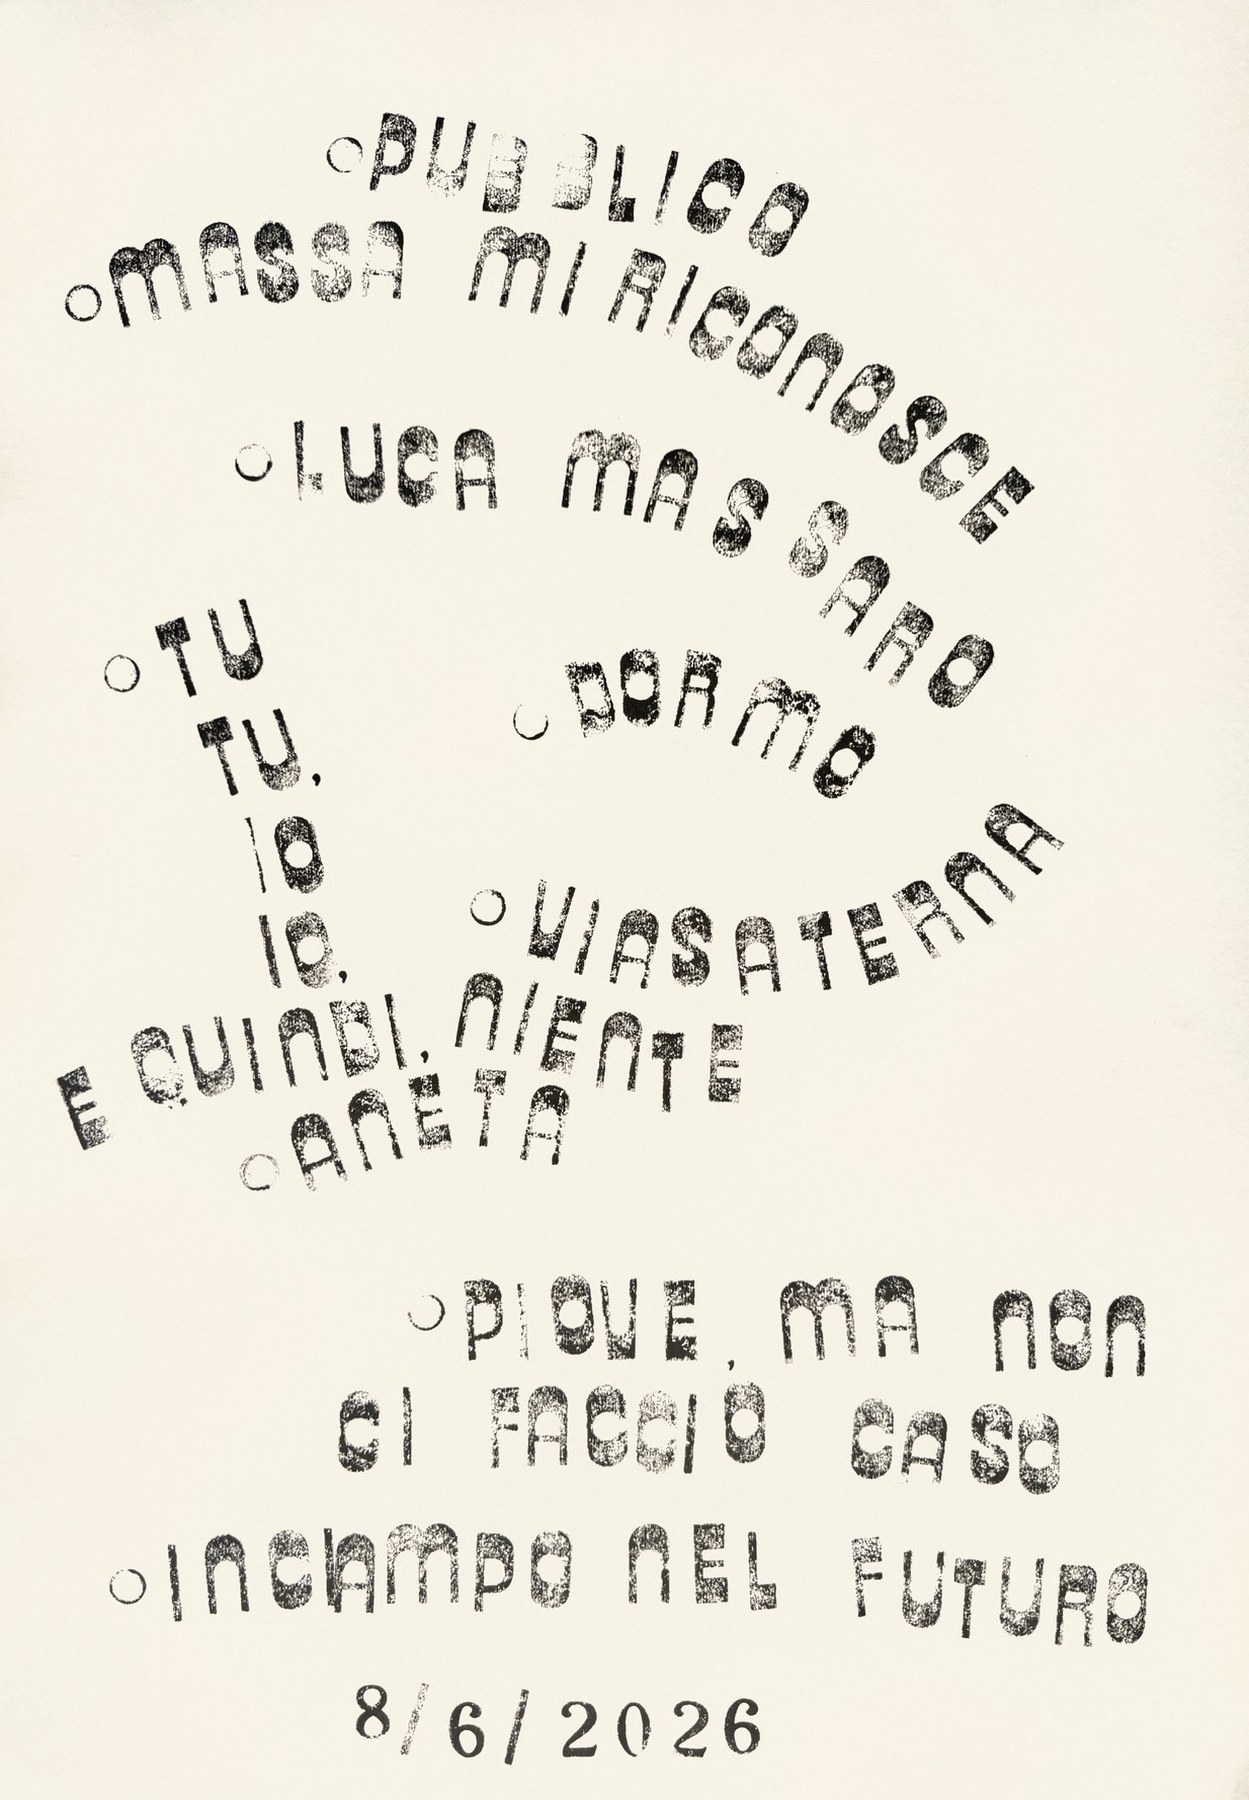 PUBBLICO
MASSA MI RICONOSCE
LUCA MASSARO
TU
TU,
IO
IO,
E QUINDI, NIENTE
DORMO
VIASATERNA
ANETA
PIOVE, MA NON
CI FACCIO CASO
INCIAMPO NEL FUTURO
8/6/2026